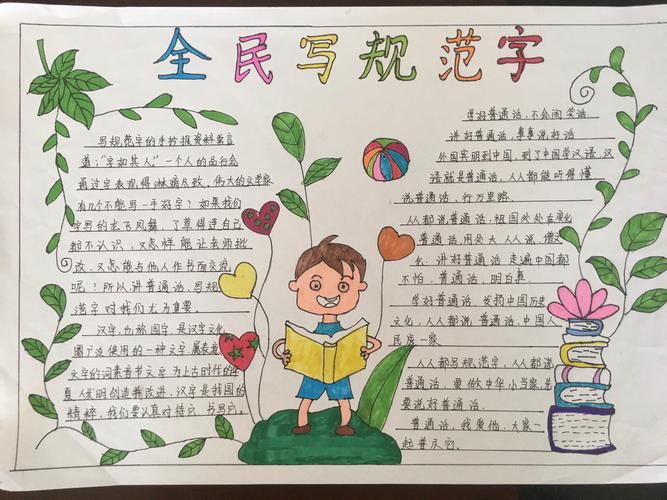 全民写规范字
写规范字的手抄报资料宣言
道:"字如其人"一个人的品行会
通过字表现得淋漓尽致。伟大的文学家
有几个不能写一手好字?如果我们
字写的龙飞凤舞,了草得连自己
都不认识,又怎样能让老师批
改,又怎能与他人作书面交流
呢?所以讲普通话,写规
范字对我们尤为重要。
汉字,也称国字,是汉字文化
圈广泛使用的一种文字,属表意
文字的词素音节文字,为上古时代的华
夏人发明创造并改进,汉字是我国的
精粹,我们要认真对待它、书写它。
学好普通话,不会闹笑话
讲好普通话,事事说好话
外国宾朋到中国,到了中国学汉语,汉
语就是普通话,人人都能听得懂
说普通话,行万里路
人人都说普通话,祖国处处在变化
普通话,用处大,人人说,
讲好普通话,走遍中国都
不怕,普通话,明百真
学好普通话,发扬中国历史
文化,人人都说普通话,中国人
民成一家
人人都写规范字,人人都说
普通话,要做中华小当家,
要说好普通话
普通话,我爱他,大家一
起普及它。